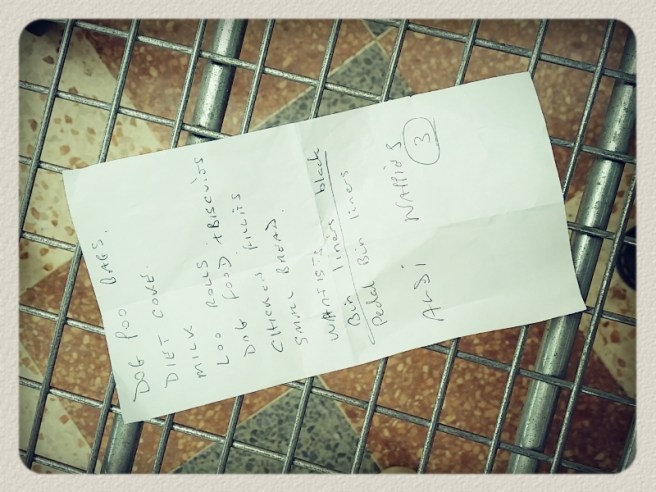 DOG POO BAGS.
DIET COKE
MILK
LOO ROLLS
DOG FOOD + BISCUITS
CHICKEN FILLITS
SMALL BREAD.
Bin liners black
Pedal Bin liners
ALDI NAPPIES 3